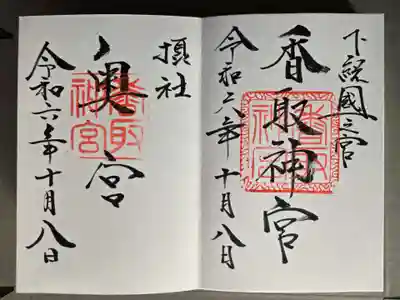 下総國一之宮
香取神宮
香取神宮
令和六年十月八日
摂社
奥宮
香取神宮
令和六年十月八日